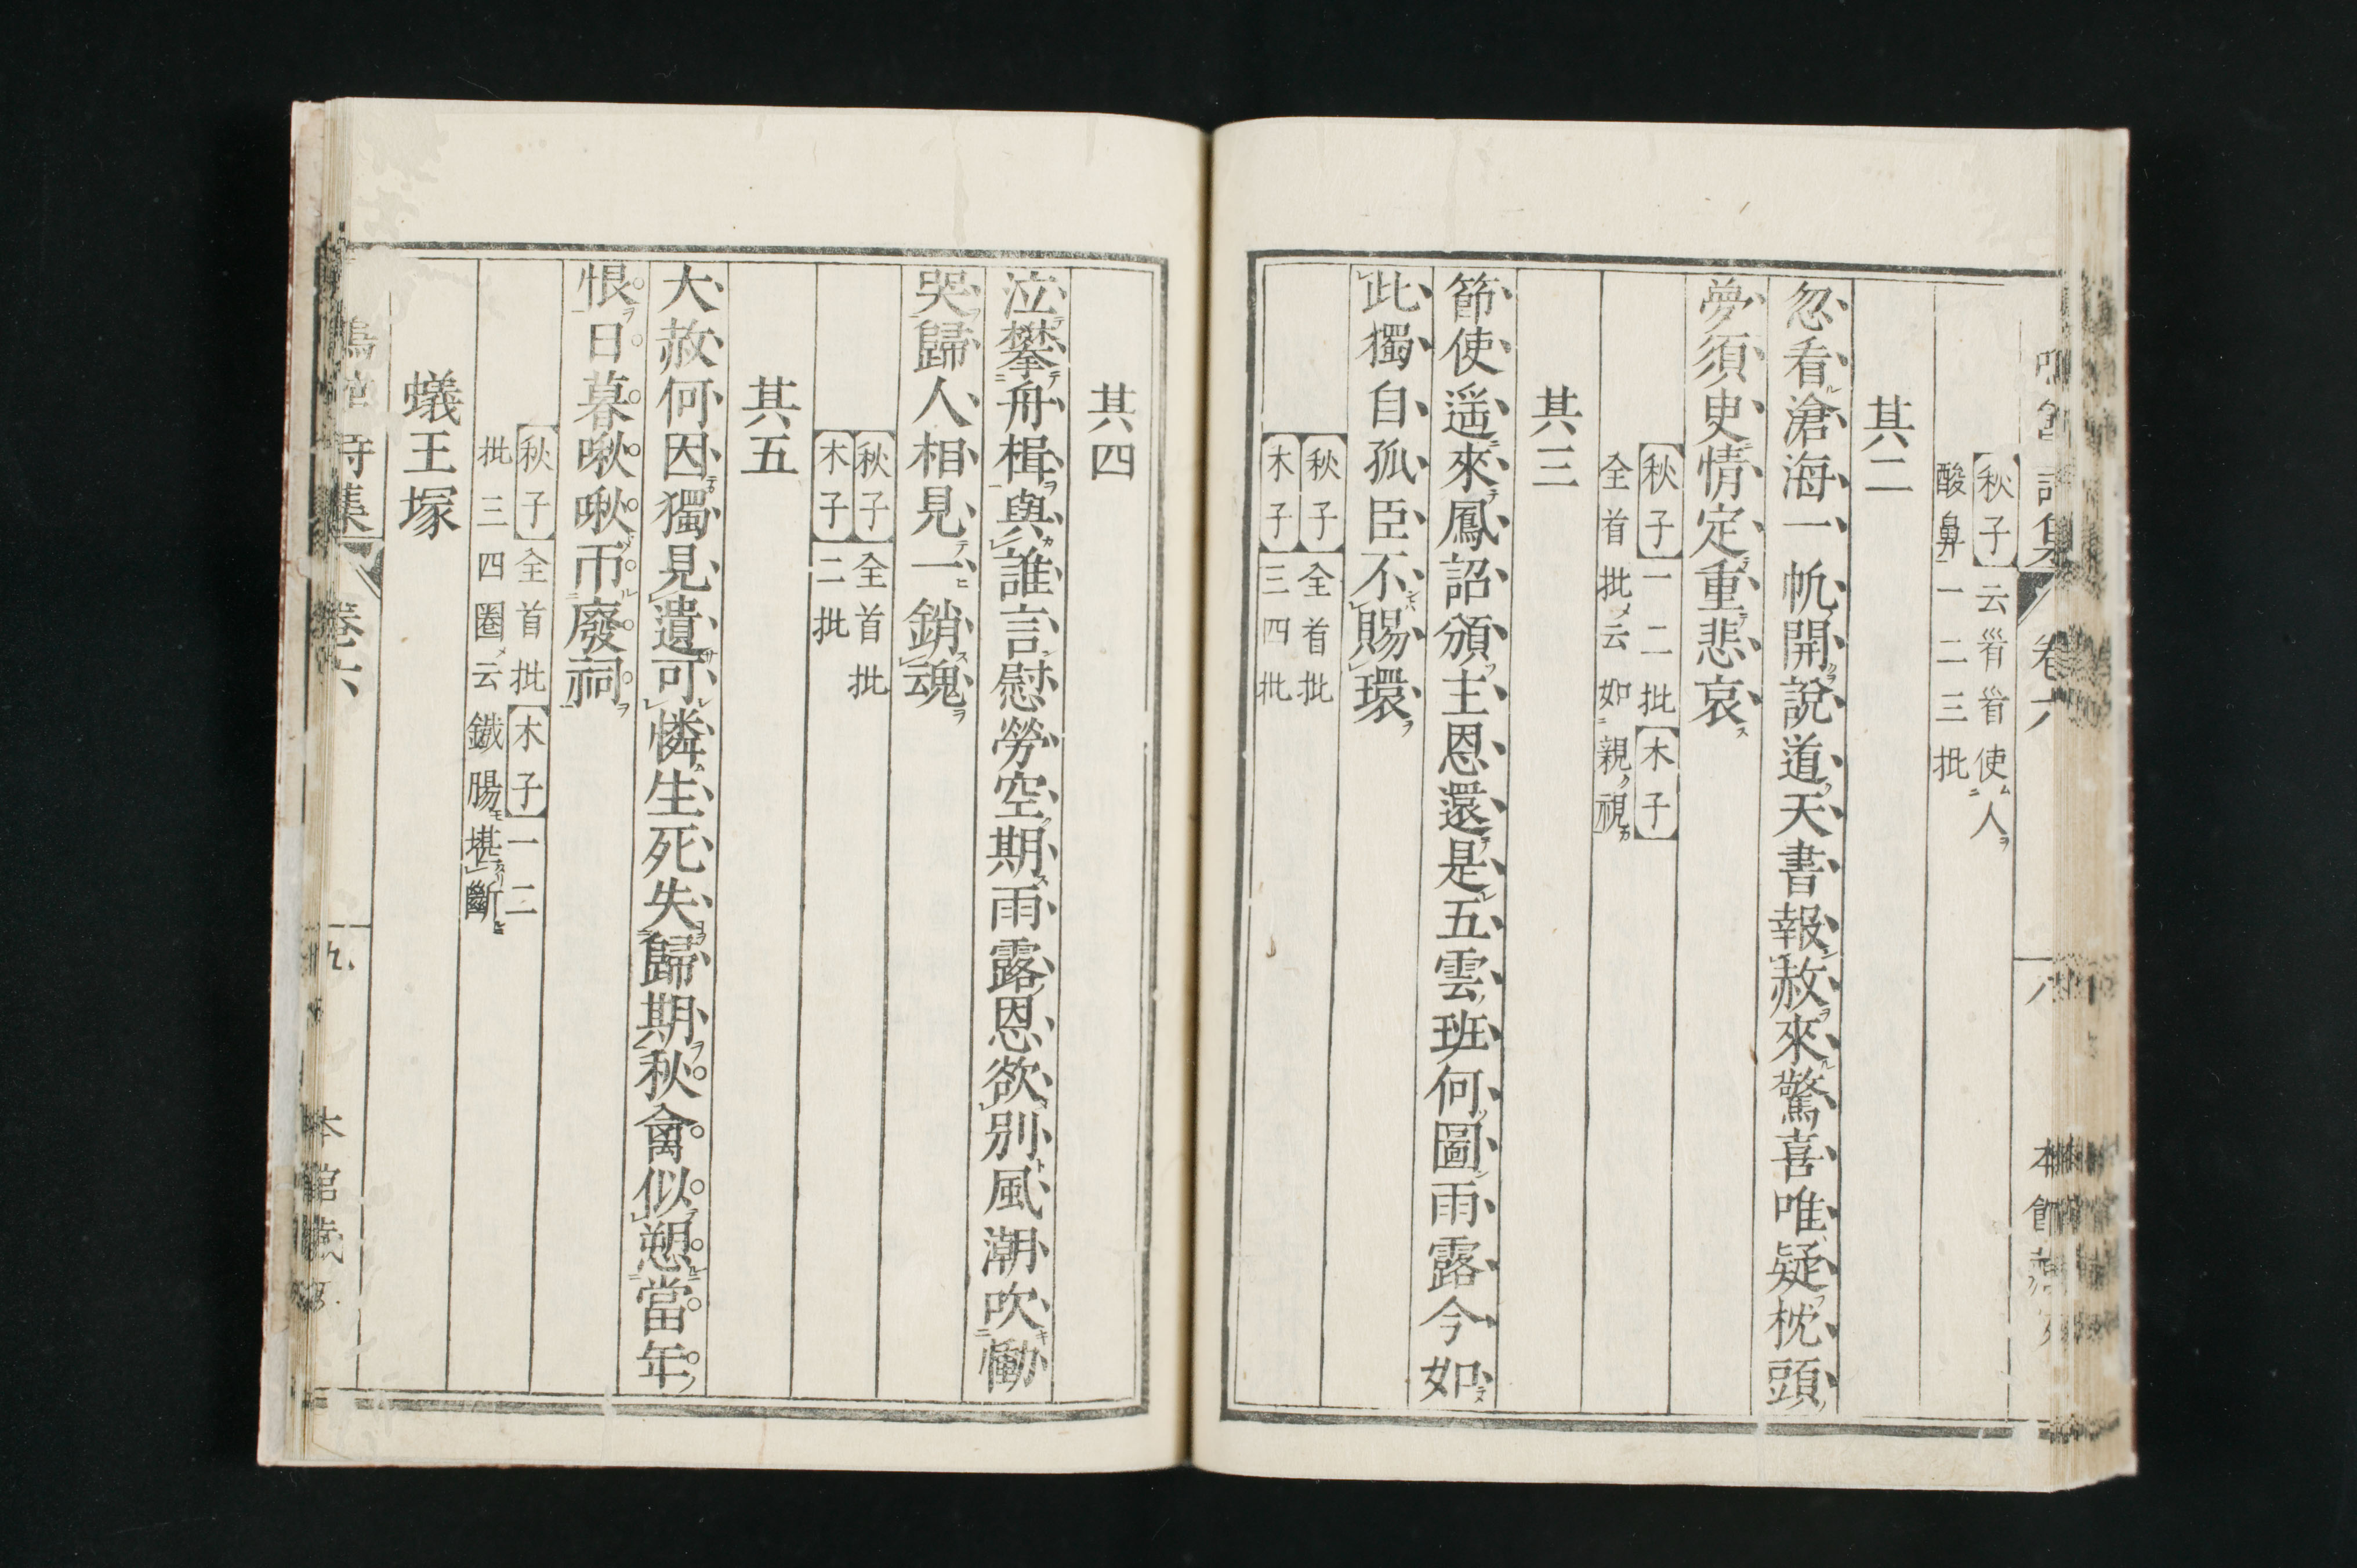 詩集 卷六
【秋子】云眥眥使人
酸鼻一二三批
其二
忽看滄海一帆開說道天書報赦來驚喜唯疑枕頭
夢須史情定重悲哀
【秋子】一二批【木子】
全首批云如親視
其三
節使遥來鳳詔頒主恩還是五雲班何圖雨露今如
此獨自孤臣不賜環
【秋子】全首批
【木子】三四批
其四
泣攀舟楫與誰言慰勞空期雨露恩欲別風潮吹慟
哭歸人相見一銷魂
【秋子】全首批
【木子】二批
其五
大赦何因獨見遺可憐生死失歸期秋禽似愬當年
恨日暮啾啾帀廢祠
【秋子】全首批【木子】一二
批三四圈云鐵腸堪斷
蟻王塚
詩集 卷六 九 本館藏